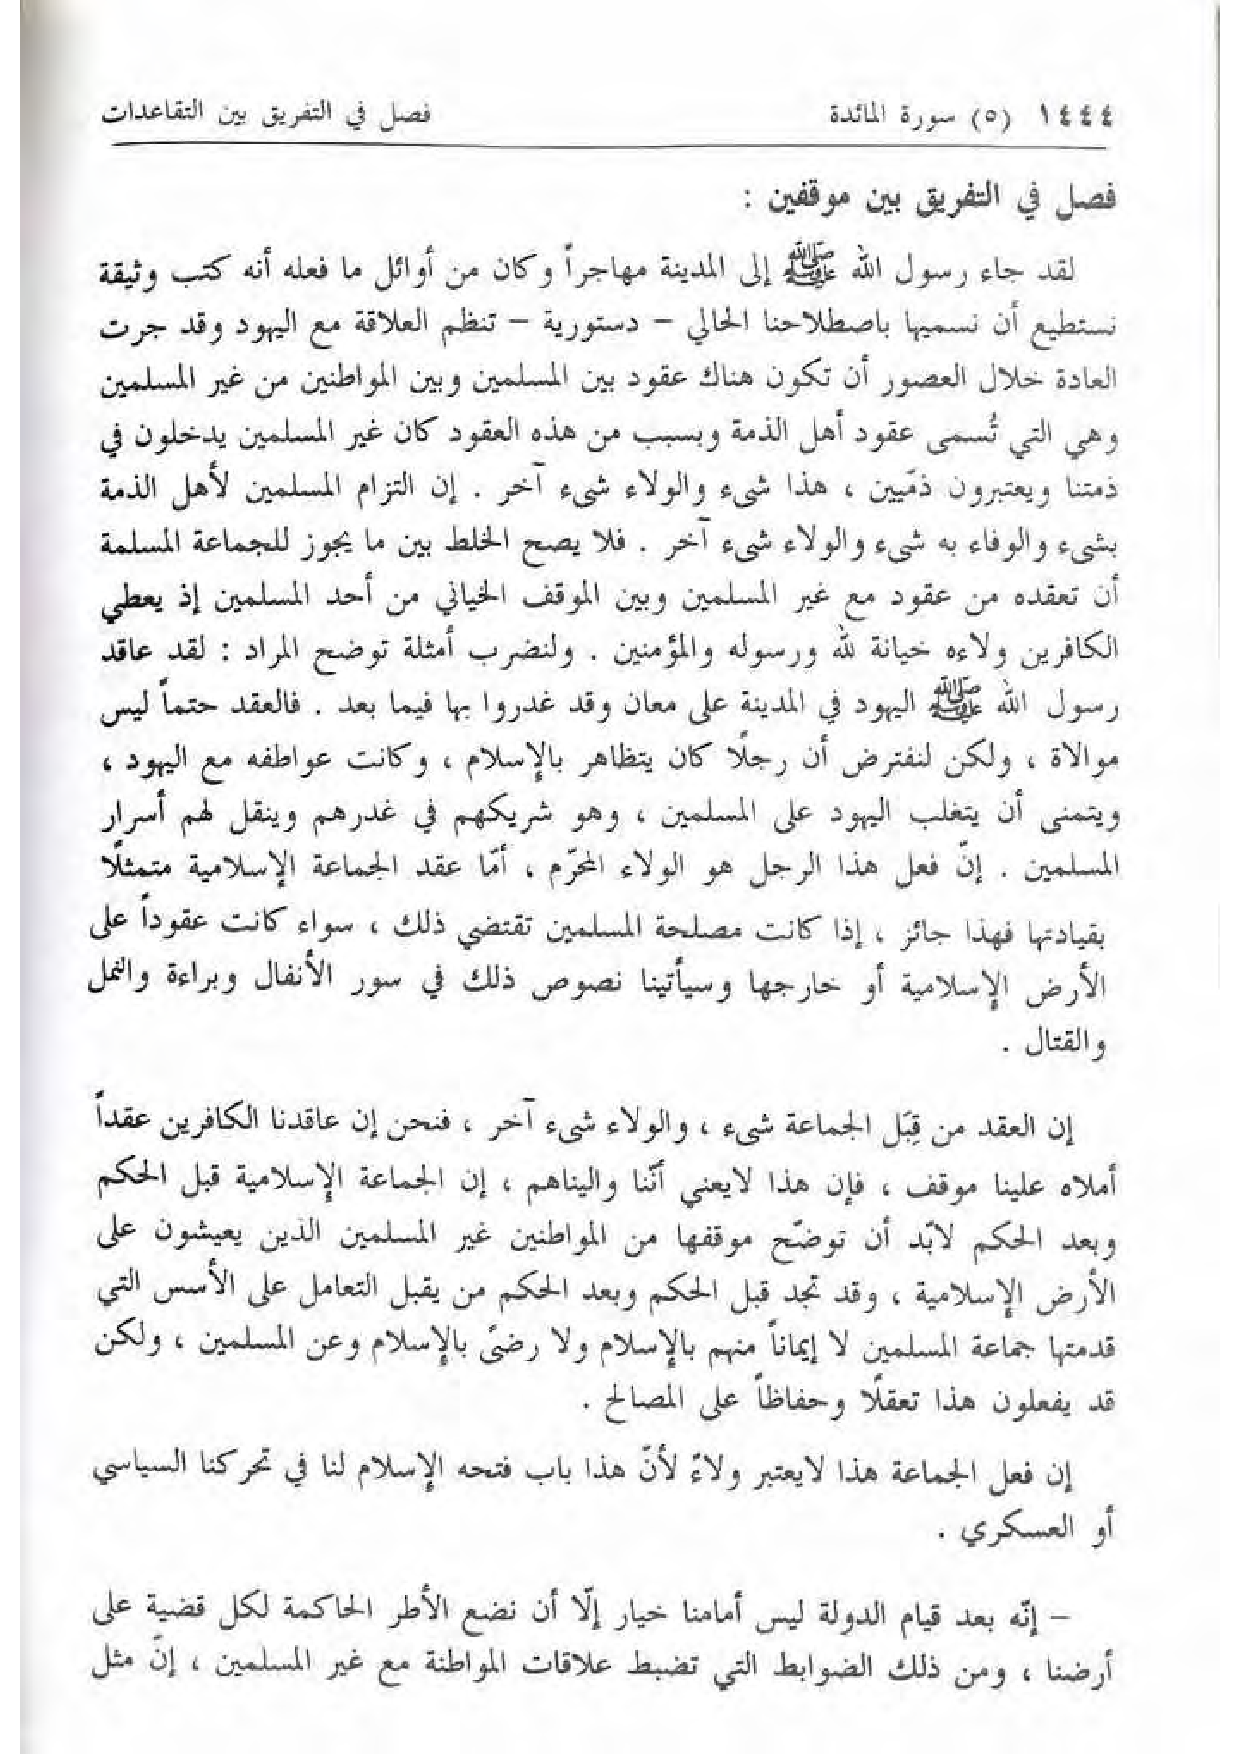 ١٤٤٤ (٥) سورة المائدة فصل في التفريق بين التقاعدات
فصل في التفريق بين موقفين :
لقد جاء رسول الله ﷺ إلى المدينة مهاجراً وكان من أوائل ما فعله أنه كتب وثيقة
نستطيع أن نسميها باصطلاحنا الحالي – دستورية – تنظم العلاقة مع اليهود وقد جرت
العادة خلال العصور أن تكون هناك عقود بين المسلمين وبين المواطنين من غير المسلمين
وهي التي تُسمى عقود أهل الذمة وبسبب من هذه العقود كان غير المسلمين يدخلون في
ذمتنا ويعتبرون ذمّيين ، هذا شىء والولاء شىء آخر . إن التزام المسلمين لأهل الذمة
بشىء والوفاء به شىء والولاء شىء آخر . فلا يصح الخلط بين ما يجوز للجماعة المسلمة
أن تعقده من عقود مع غير المسلمين وبين الموقف الخياني من أحد المسلمين إذ يعطي
الكافرين ولاءه خيانة لله ورسوله والمؤمنين . ولنضرب أمثلة توضح المراد : لقد عاقد
رسول الله ﷺ اليهود في المدينة على معان وقد غدروا بها فيما بعد . فالعقد حتماً ليس
موالاة ، ولكن لنفترض أن رجلًا كان يتظاهر بالإسلام ، وكانت عواطفه مع اليهود ،
ويتمنى أن يتغلب اليهود على المسلمين ، وهو شريكهم في غدرهم وينقل لهم أسرار
المسلمين . إنّ فعل هذا الرجل هو الولاء المحرّم ، أمّا عقد الجماعة الإسلامية متمثلًا
بقيادتها فهذا جائز ، إذا كانت مصلحة المسلمين تقتضي ذلك ، سواء كانت عقوداً على
الأرض الإسلامية أو خارجها وسيأتينا نصوص ذلك في سور الأنفال وبراءة والنمل
والقتال .
إن العقد من قِبَل الجماعة شىء ، والولاء شىء آخر ، فنحن إن عاقدنا الكافرين عقداً
أملاه علينا موقف ، فإن هذا لايعني أنّنا واليناهم ، إن الجماعة الإسلامية قبل الحكم
وبعد الحكم لابّد أن توضّح موقفها من المواطنين غير المسلمين الذين يعيشون على
الأرض الإسلامية ، وقد تجد قبل الحكم وبعد الحكم من يقبل التعامل على الأسس التي
قدمتها جماعة المسلمين لا إيماناً منهم بالإسلام ولا رضىً بالإسلام وعن المسلمين ، ولكن
قد يفعلون هذا تعقلًا وحفاظاً على المصالح .
إن فعل الجماعة هذا لايعتبر ولاءً لأنّ هذا باب فتحه الإسلام لنا في تحركنا السياسي
أو العسكري .
– إنّه بعد قيام الدولة ليس أمامنا خيار إلّا أن نضع الأطر الحاكمة لكل قضية على
أرضنا ، ومن ذلك الضوابط التي تضبط علاقات المواطنة مع غير المسلمين ، إنّ مثل